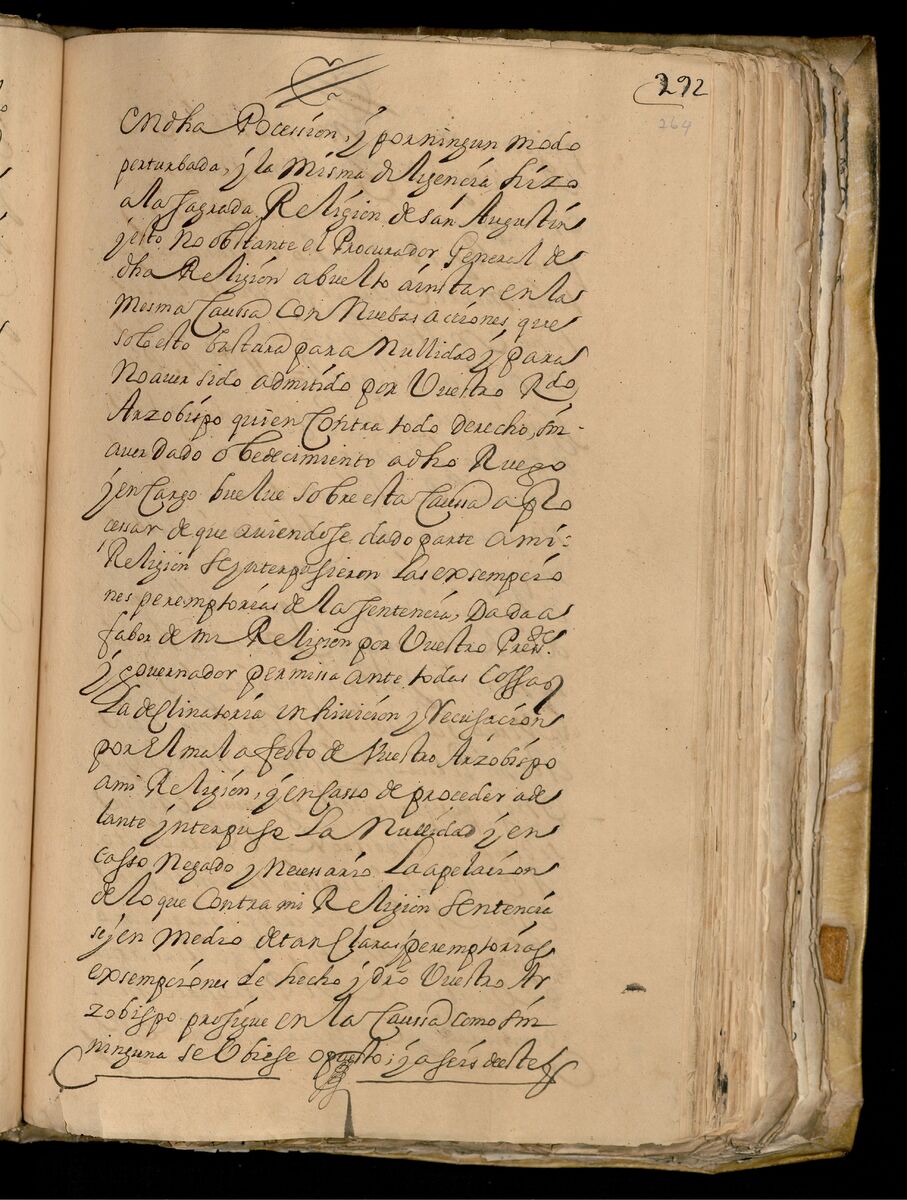 292
264
en dha Pocession, y por ningun modo
perturbada, y la misma diligencia hizo
a la sagrada Religion de san Augustin
y esto no obstante el Procurador General de
dha Religion a buelto a instar en la
mesma Caussa con nuebas acciones que
sobesto bastara para Nullidad y para
no aver sido admitido por Vuestro Rdo
Arzobispo quien contra todo derecho, sin
aver dado obedecimiento a dho Ruego
y en Cargo buelue sobre esta Caussa a pro
cessar de que auiendose dado parte a mi
Religion se ynterpusieron las exsempcio
nes peremptorias de la sentencia, Dada a
fabor de mi Religion por Vuestro Presde
y gouernador permissa ante todas cossas
La declinatoria inhiuicion y Recusacion
por El mal afecto de Vuestro Arzobispo
a mi Religion, y en Casso de proceder ade
lante ynterpuse La Nullidad y en
casso Negado y Necessario La apelacion
de lo que Contra mi Religion sentencia
se y en medio de tan Claras y peremptorias
exsempciones de hecho y dro Vuestro Ar
zobispo prosigue en la Caussa como sin
ninguna se Ubiese opuesto; y a seis de este